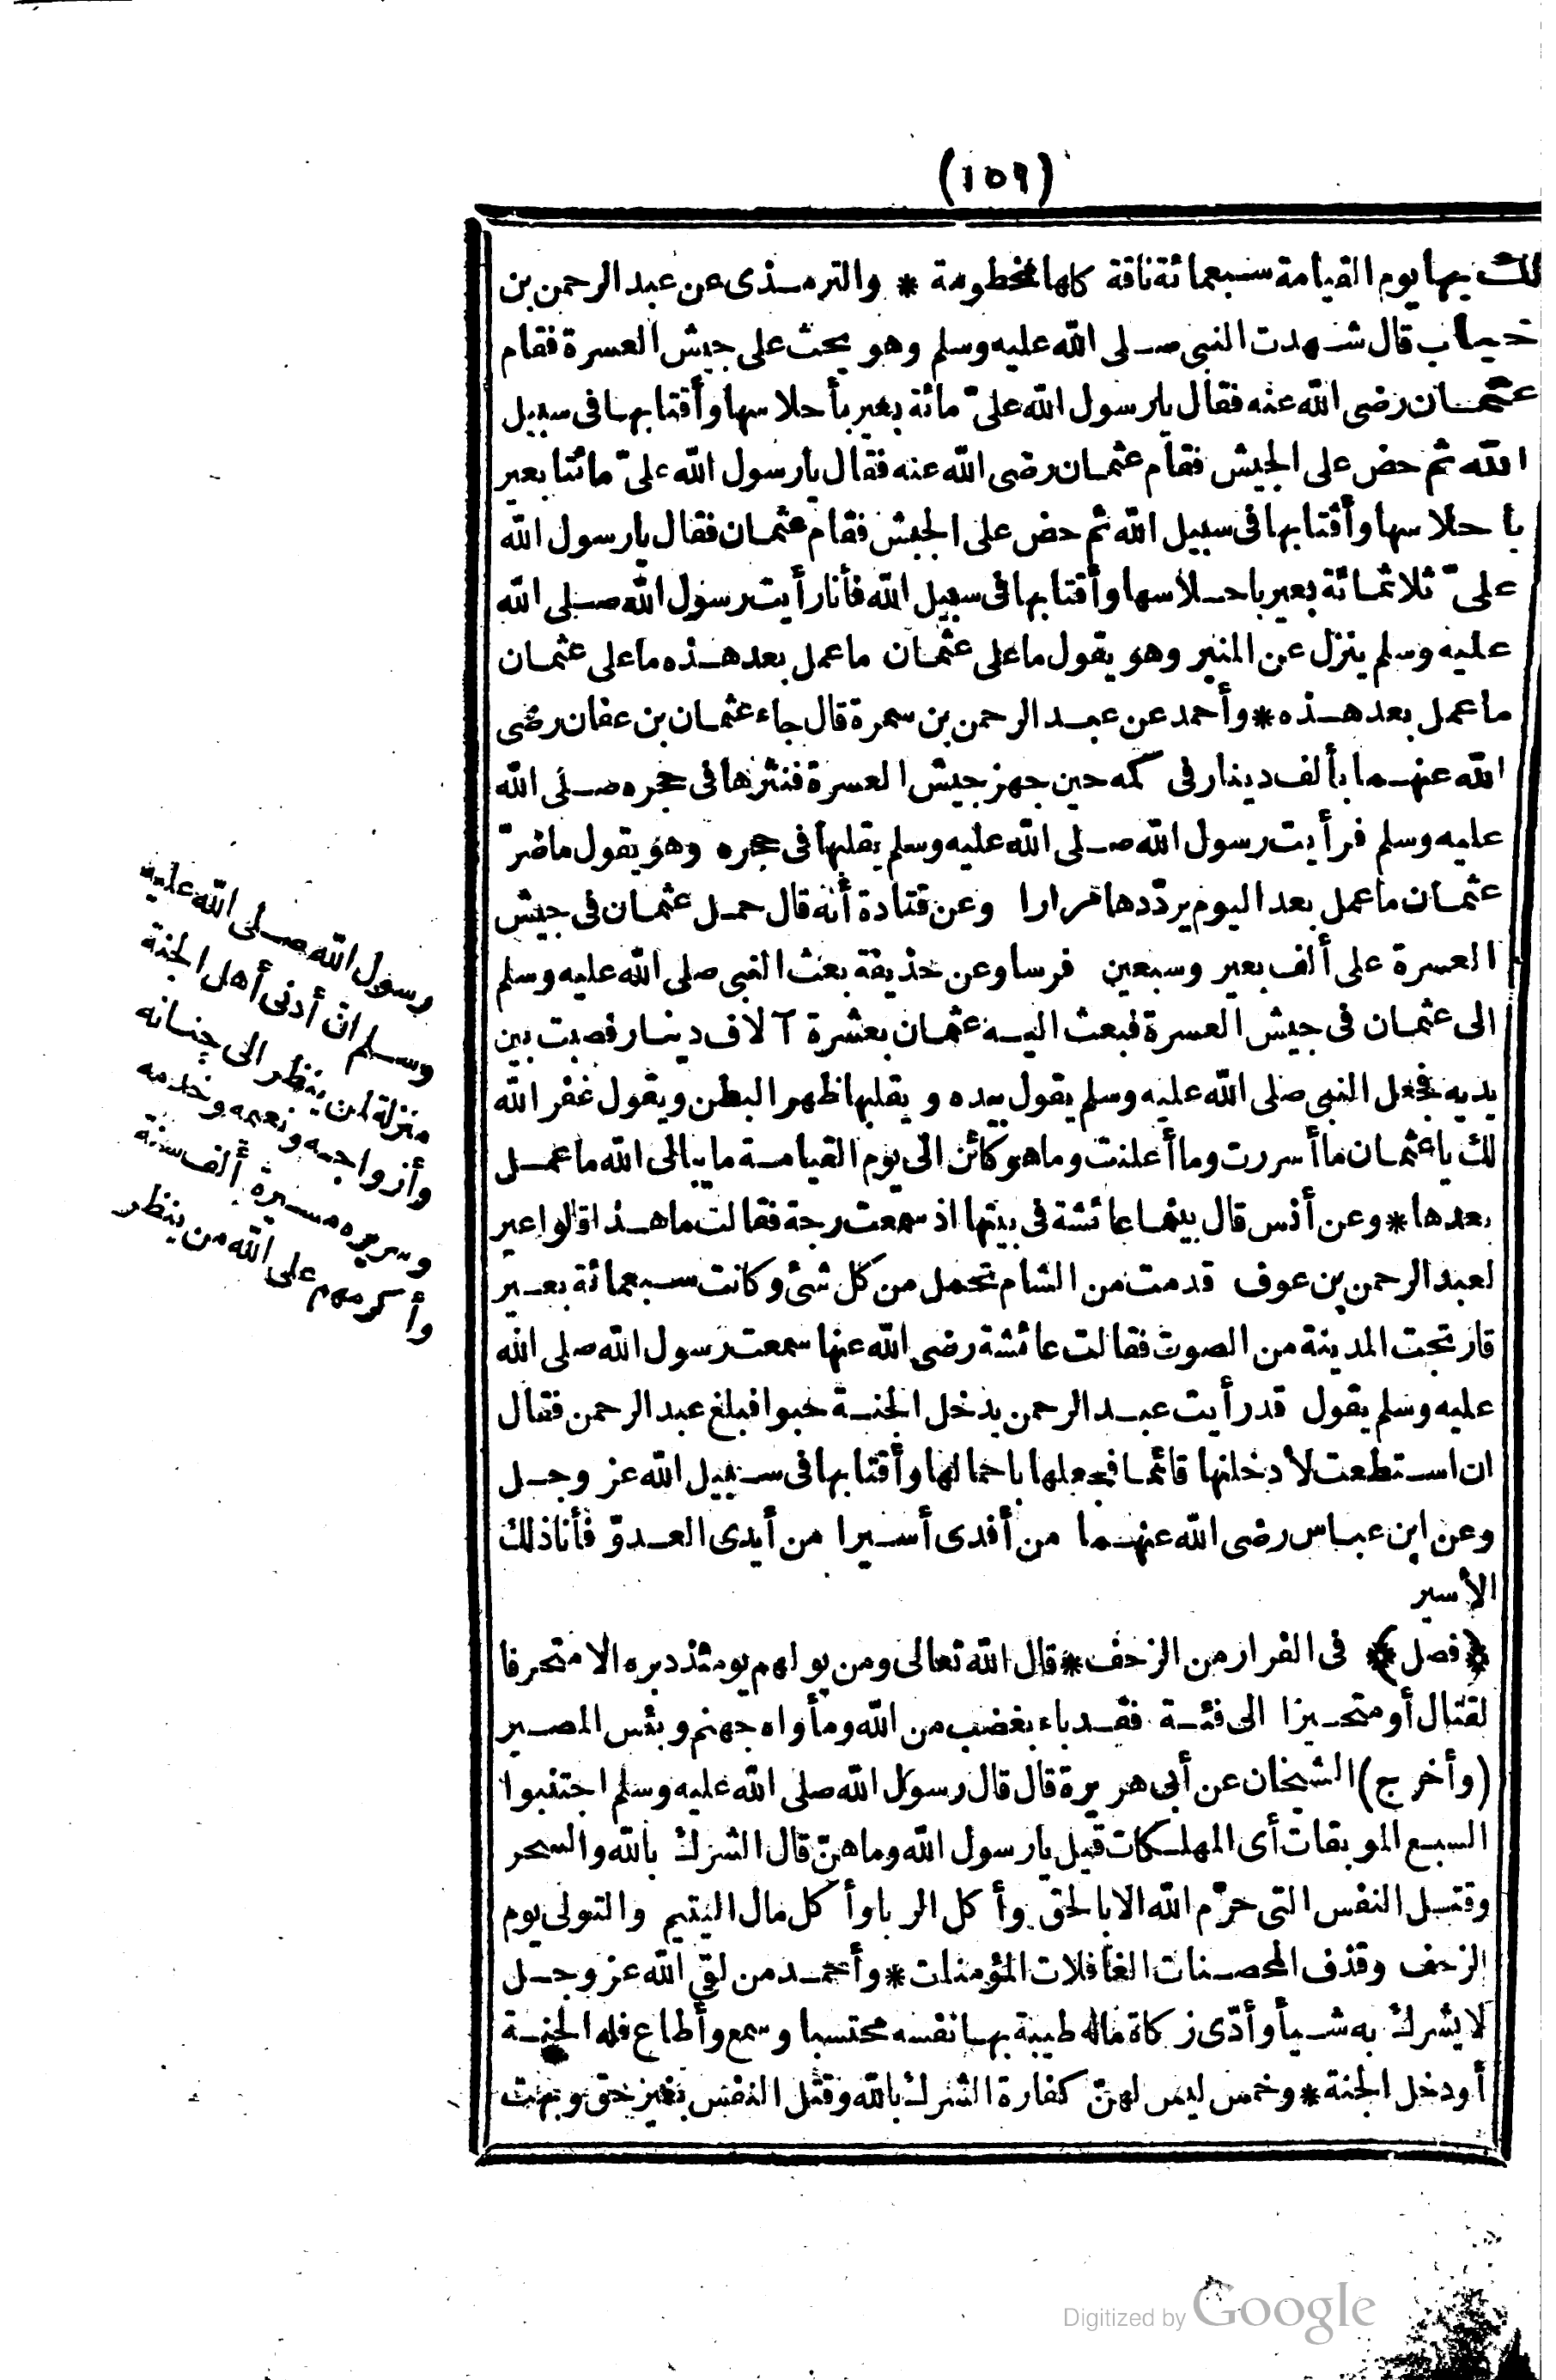 (١٥٩)
لك بها يوم القيامة سبعمائة ناقة كلها مخطومة * والترمذى عن عبد الرحمن بن
خباب قال شهدت النبى صلى الله عليه وسلم وهو يحث على جيش العسرة فقام
عثمان رضى الله عنه فقال يارسول الله علىّ مائة بعير بأحلاسها وأقتابها فى سبيل
الله ثم حض على الجيش فقام عثمان رضى الله عنه فقال يارسول الله علىّ مائتا بعير
بأحلاسها وأقتابها فى سبيل الله ثم حض على الجيش فقام عثمان فقال يارسول الله
علىّ ثلاثمائة بعير باحلاسها وأقتابها فى سبيل الله فأنا رأيت رسول الله صلى الله
عليه وسلم ينزل عن المنبر وهو يقول ما على عثمان ما عمل بعد هذه ما على عثمان
ما عمل بعد هذه * وأحمد عن عبد الرحمن بن سمرة قال جاء عثمان بن عفان رضى
الله عنهما بألف دينار فى كمه حين جهز جيش العسرة فنثرها فى حجره صلى الله
عليه وسلم فرأيت رسول الله صلى الله عليه وسلم يقلبها فى حجره وهو يقول ما ضرّ
عثمان ما عمل بعد اليوم يردّدها مرارا وعن قتادة أنه قال حمل عثمان فى جيش
العسرة على ألف بعير وسبعين فرسا وعن حذيفة بعث النبى صلى الله عليه وسلم
الى عثمان فى جيش العسرة فبعث اليه عثمان بعشرة آلاف دينار فصبت بين
يديه فجعل النبى صلى الله عليه وسلم يقول بيده ويقلبها ظهر البطن ويقول غفر الله
لك ياعثمان ما أسررت وما أعلنت وما هو كائن الى يوم القيامة ما يبالى الله ما عمل
بعدها * وعن أنس قال بينما عائشة فى بيتها اذ سمعت رجة فقالت ما هذا قالوا عير
لعبد الرحمن بن عوف قدمت من الشام تحمل من كل شئ وكانت سبعمائة بعير
فارتجت المدينة من الصوت فقالت عائشة رضى الله عنها سمعت رسول الله صلى الله
عليه وسلم يقول قد رأيت عبد الرحمن يدخل الجنة حبوا فبلغ عبد الرحمن فقال
ان استطعت لأدخلنها قائما فجعلها باحمالها وأقتابها فى سبيل الله عز وجل
وعن ابن عباس رضى الله عنهما من أفدى أسيرا من أيدى العدوّ فأنا ذلك
الأسير
﴿فصل﴾ فى الفرار من الزحف * قال الله تعالى ومن يولهم يومئذ دبره الا متحرفا
لقتال أو متحيزا الى فئة فقد باء بغضب من الله ومأواه جهنم وبئس المصير
(وأخرج) الشيخان عن أبى هريرة قال قال رسول الله صلى الله عليه وسلم اجتنبوا
السبع الموبقات أى المهلكات قيل يارسول الله وما هنّ قال الشرك بالله والسحر
وقتل النفس التى حرّم الله الا بالحق وأكل الربا وأكل مال اليتيم والتولى يوم
الزحف وقذف المحصنات الغافلات المؤمنات * وأحمد من لقى الله عز وجل
لا يشرك به شيأ وأدّى زكاة ماله طيبة بها نفسه محتسبا وسمع وأطاع فله الجنة
أو دخل الجنة * وخمس ليس لهنّ كفارة الشرك بالله وقتل النفس بغير حق وبهت
رسول الله صلى الله عليه
وسلم انّ أدنى أهل الجنة
منزلة لمن ينظر الى جنانه
وأزواجه ونعيمه وخدمه
وسريره مسيرة ألف سنة
وأكرمهم على الله من ينظر
Digitized by Google